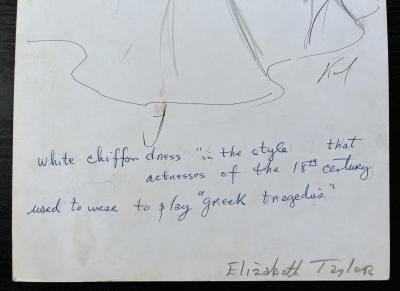 white chiffon dress "in the style that
actresses of the 18th century
used to wear to play "greek tragedies"
Elizabeth Taylor